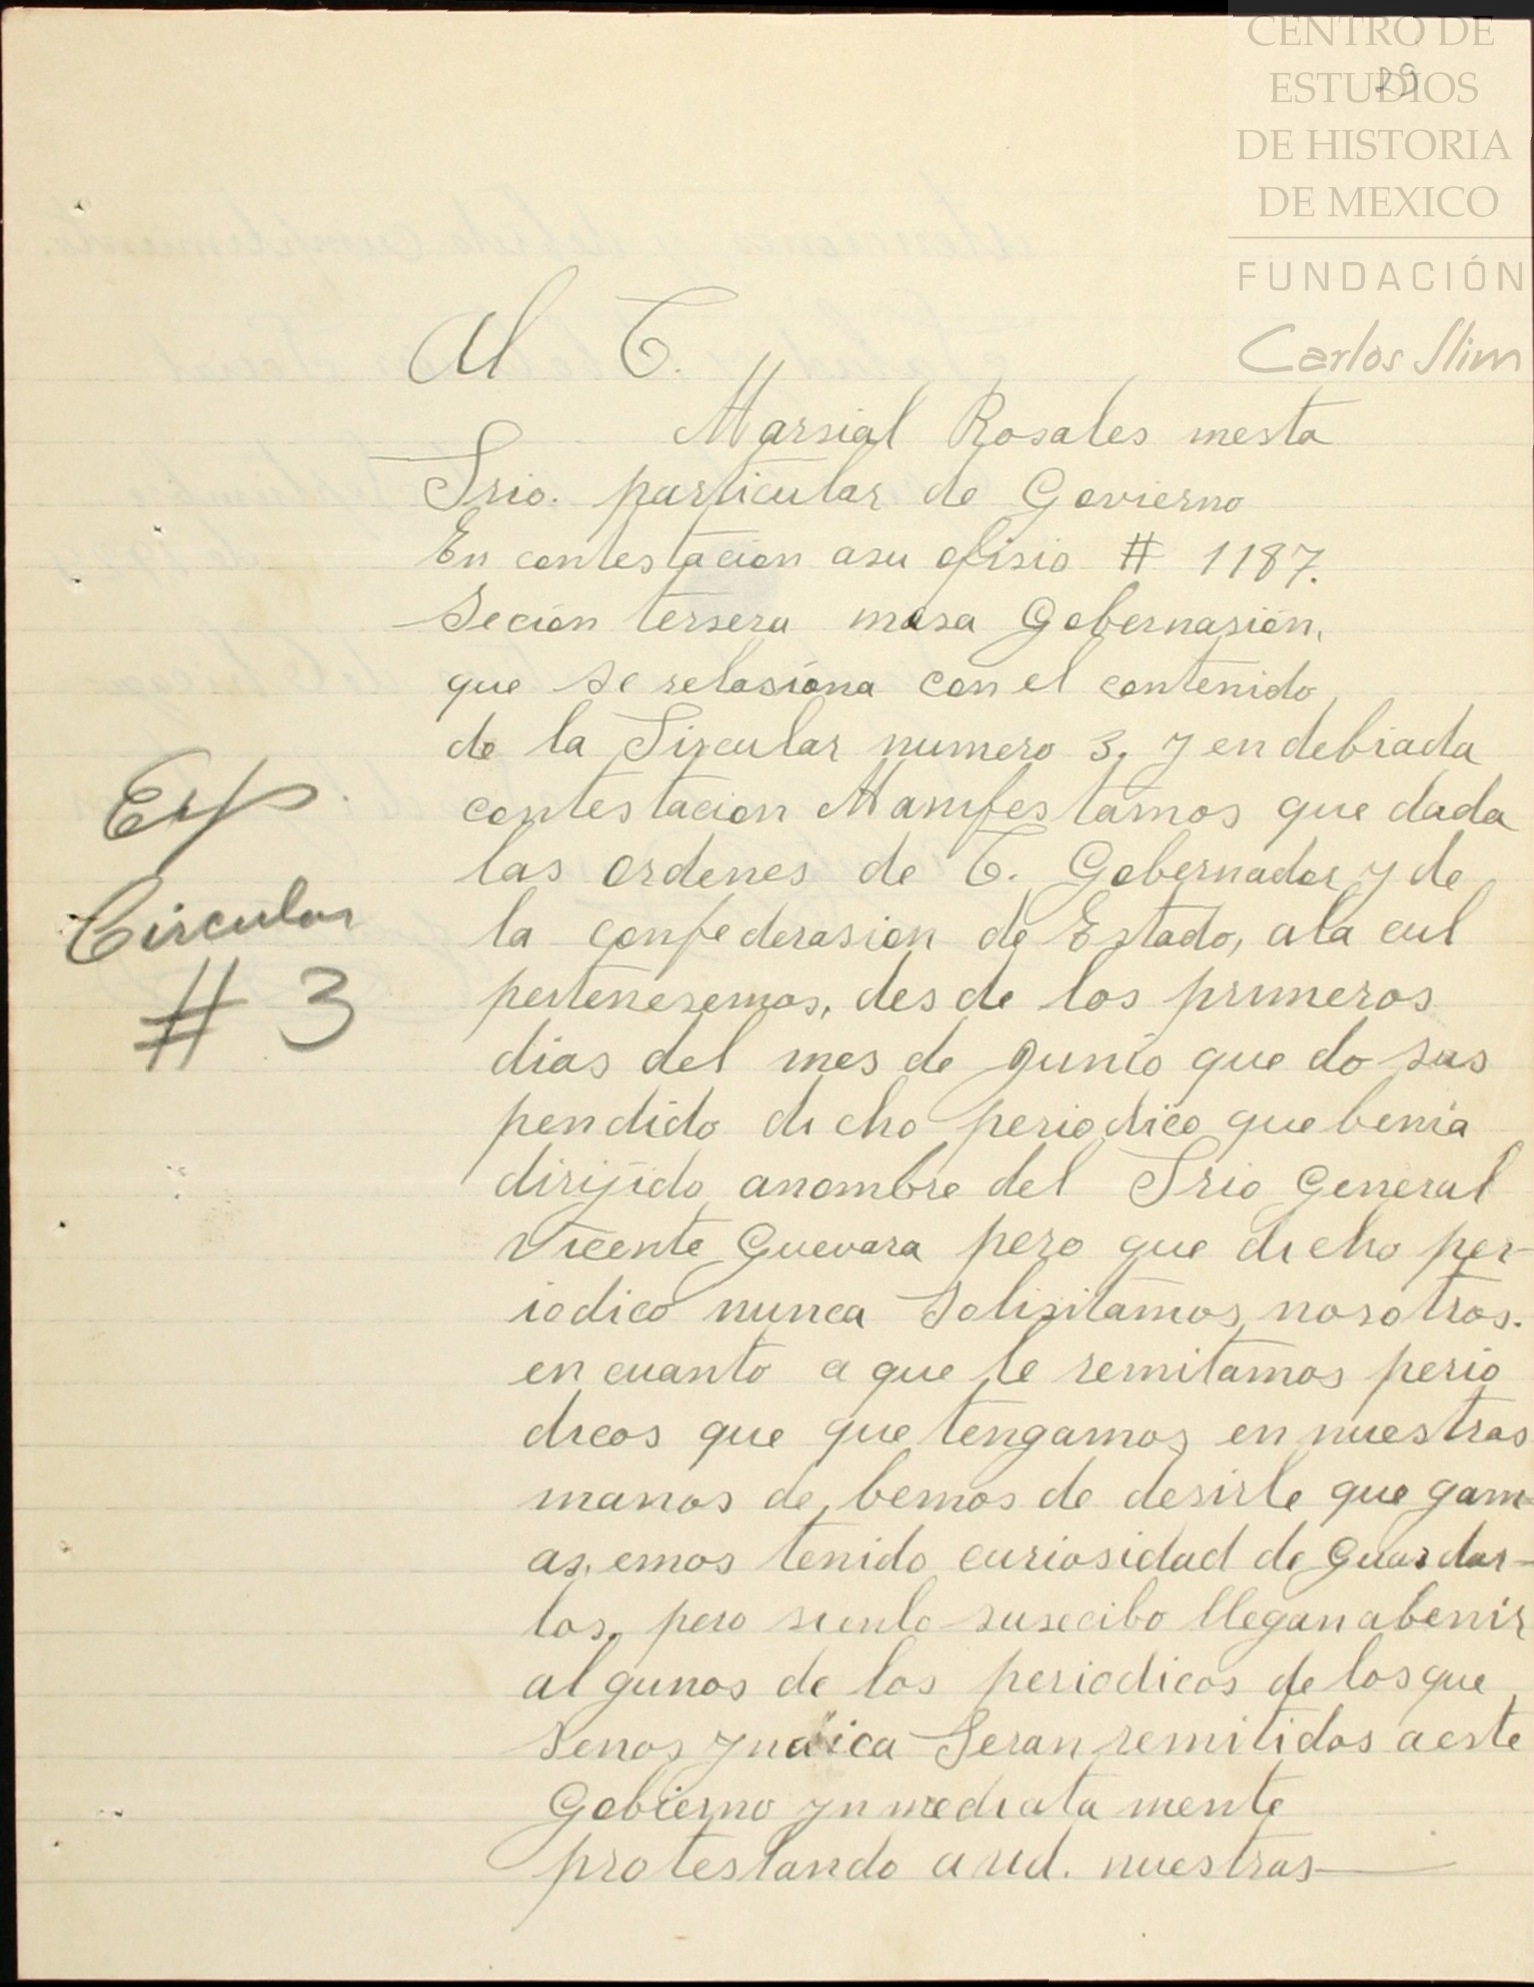 CENTRO DE
ESTUDIOS
DE HISTORIA
DE MEXICO
FUNDACIÓN
Carlos Slim
29
Al C.
Marsial Rosales mesta
Srio. particular de Govierno
En contestación asu ofisio # 1187.
Seción tersera mesa Gobernasión,
que se relasióna con el contenido
de la Sircular numero 3. y en debiada
contestacion Manifestamos que dada
las ordenes de C. Gobernador y de
la confederasion de Estado, ala cul
pertenesemos, desde los primeros
dias del mes de Junio que do sus
pendido dicho periodico que benia
dirijido anombre del Srio General
Vicente Guevara pero que dicho per-
iodico nunca Solisitamos nosotros.
en cuanto a que le remitamos perio
dicos que que tengamos en nuestras
manos de bemos de desirle que gam-
as, emos tenido curiosidad de Guardar-
los, pero llegan abenir
algunos de los periodicos de los que
Senos yndica Seran remitidos aeste
Gobierno ynmediata mente
protestando aud. nuestras
Exp.
Circular
# 3